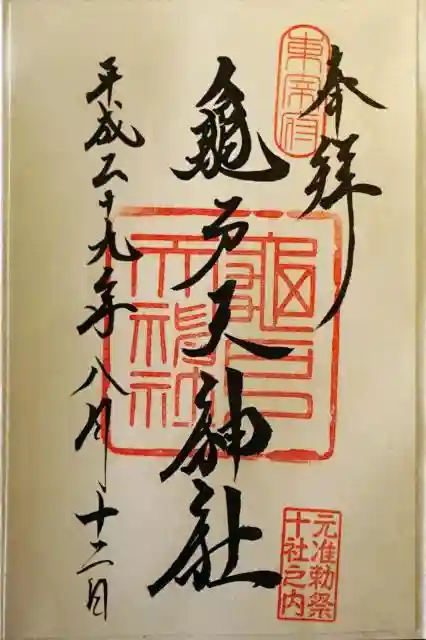 奉拝
東宰府
龜戸天神社
龜戸
天神社
平成二十九年八月十二日
元准勅祭
十社之内